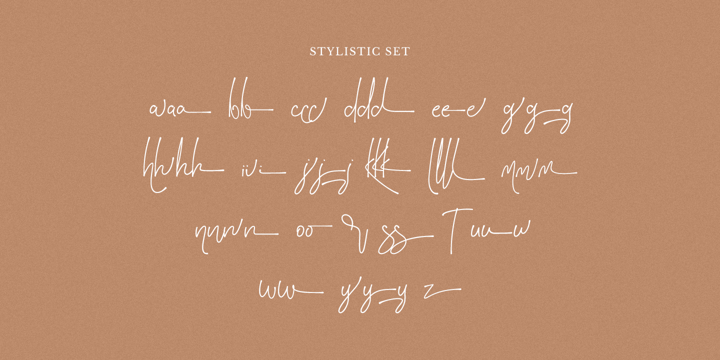 STYLISTIC SET
aaa bb ccc ddd eee ggg
hhhh iii jjj kkk llll mmm
nnnn oo ss T uuu
ww yyy z